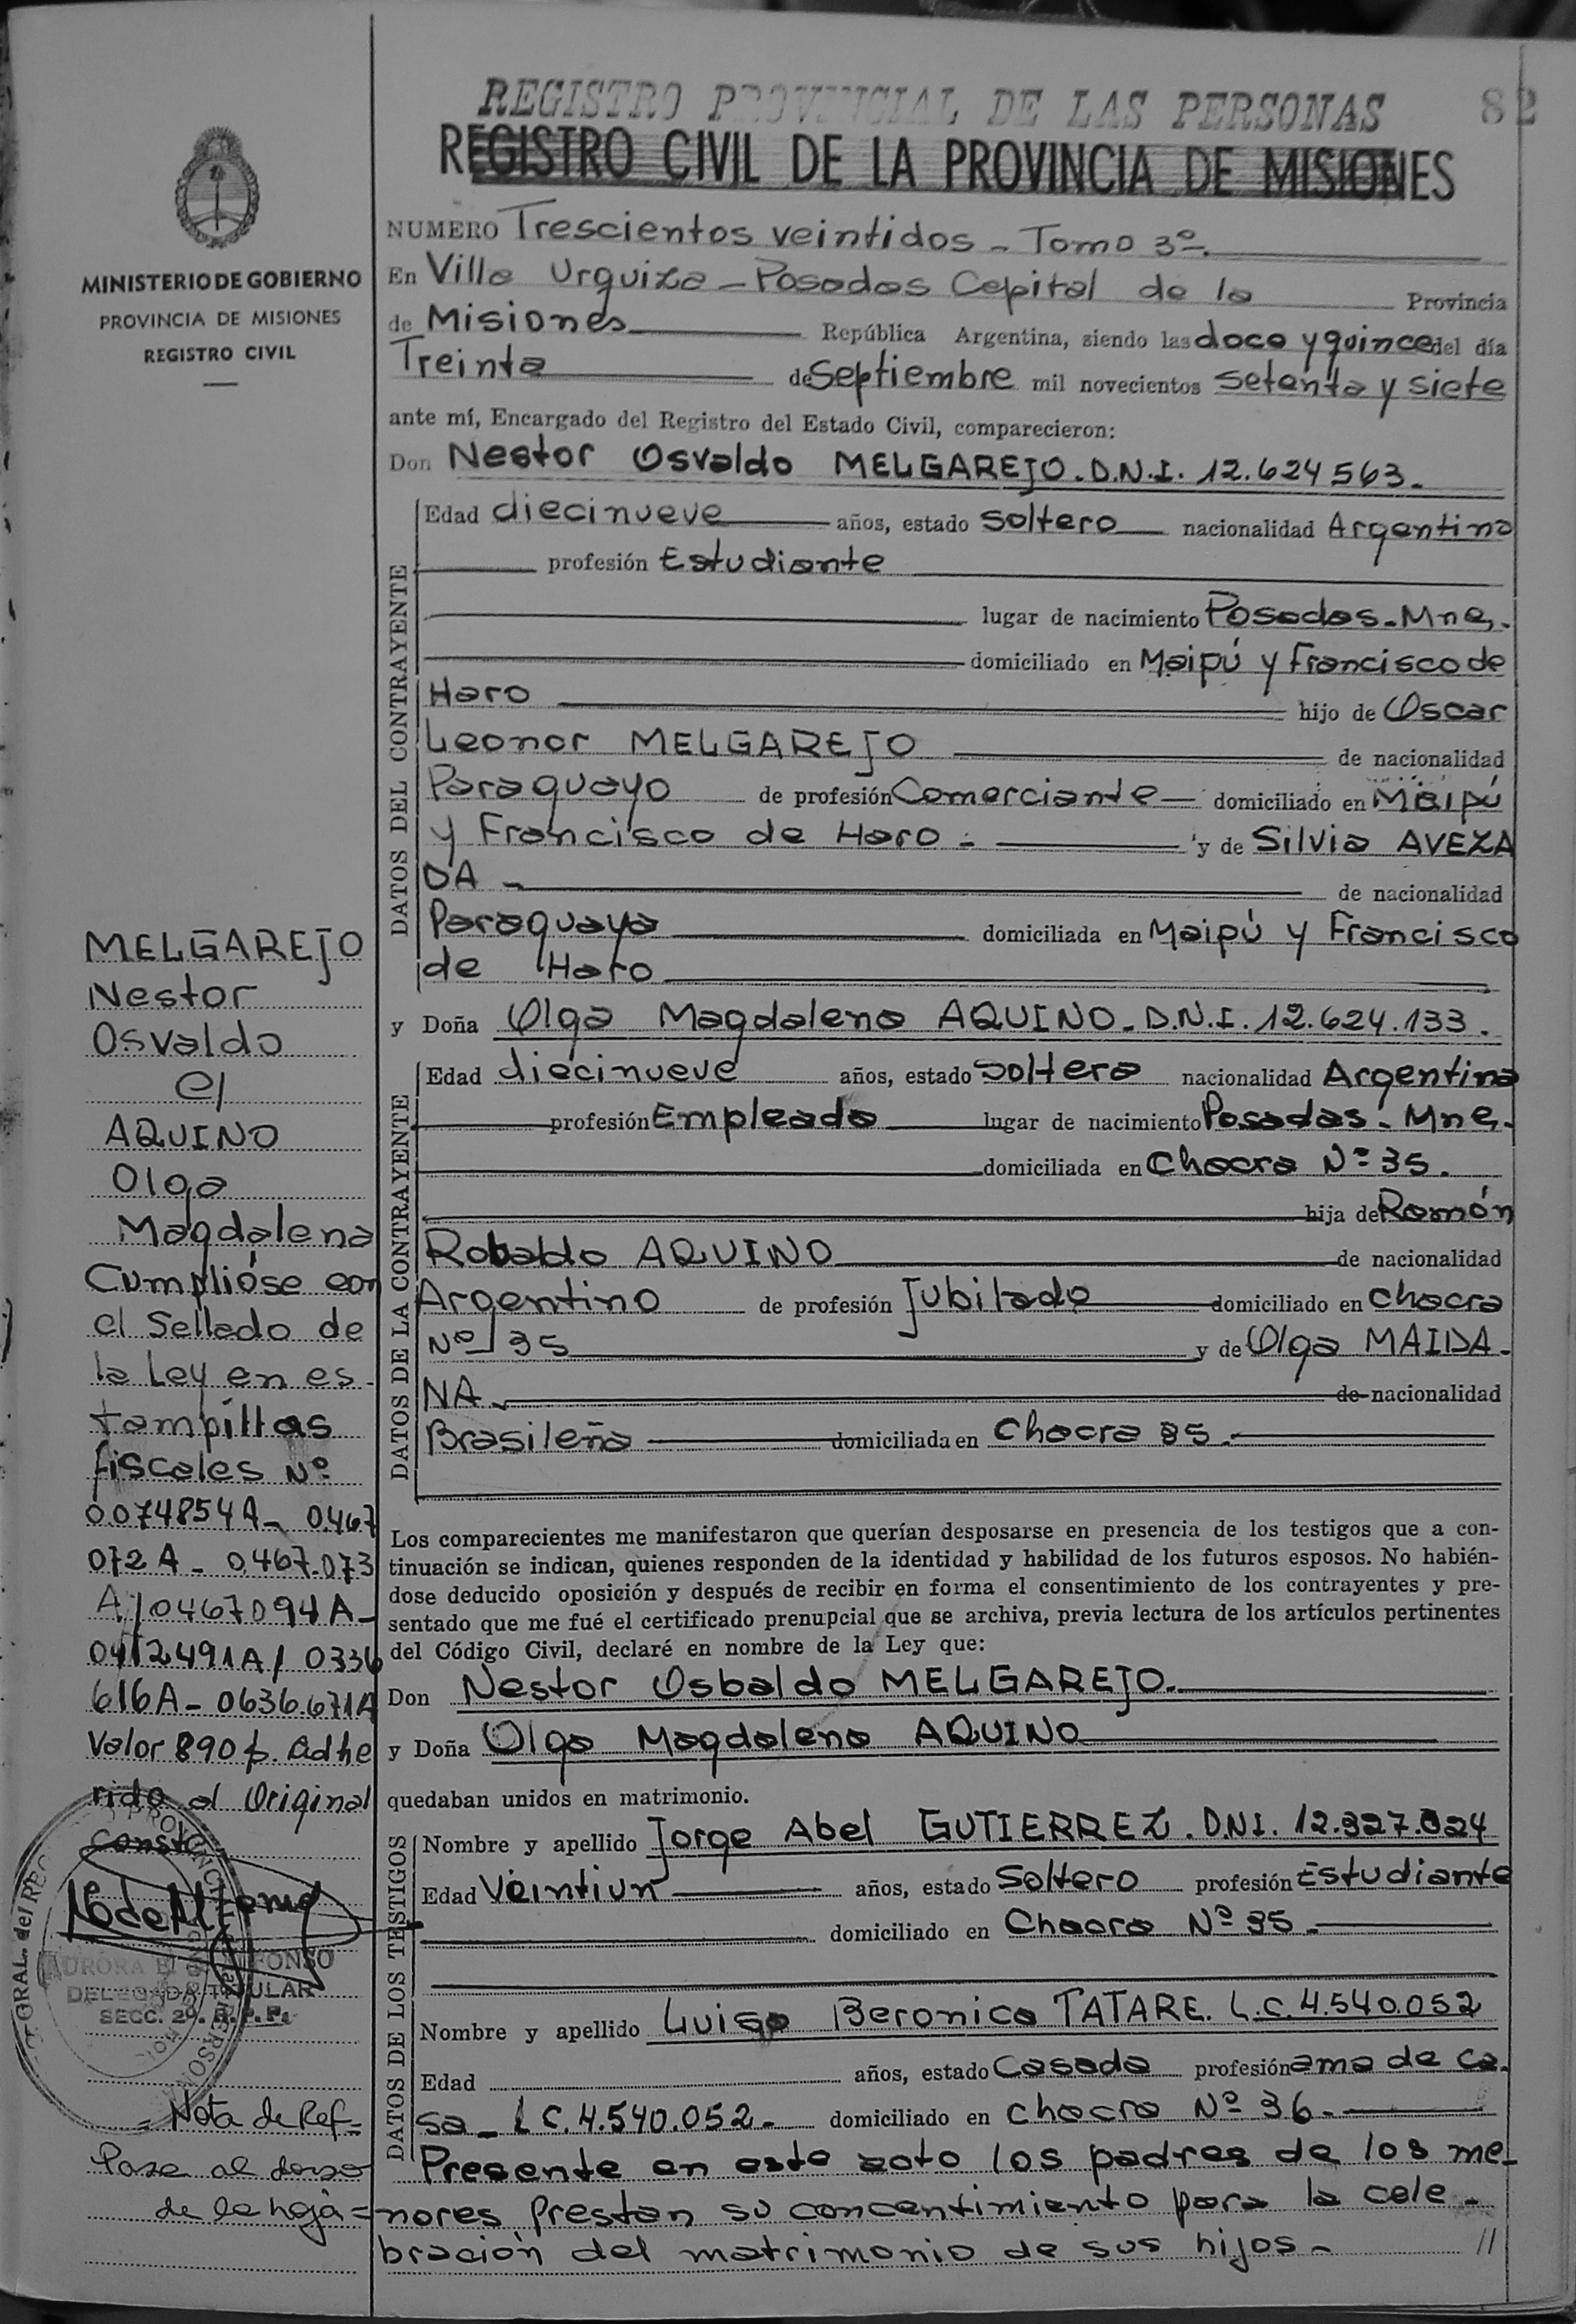 REGISTRO PROVINCIAL DE LAS PERSONAS 82
REGISTRO CIVIL DE LA PROVINCIA DE MISIONES
MINISTERIO DE GOBIERNO
PROVINCIA DE MISIONES
REGISTRO CIVIL
NUMERO Trescientos veintidos - Tomo 3º-
En Villa Urquiza - Posadas Capital de la Provincia
de Misiones República Argentina, siendo las doce y quince del día
Treinta de Septiembre mil novecientos setenta y siete
ante mí, Encargado del Registro del Estado Civil, comparecieron:
Don Nestor Osvaldo MELGAREJO. D.N.I. 12.624563.
DATOS DEL CONTRAYENTE
Edad diecinueve años, estado soltero nacionalidad Argentina
profesión Estudiante
lugar de nacimiento Posadas - Mnes.
domiciliado en Maipú y Francisco de
Haro hijo de Oscar
Leonor MELGAREJO de nacionalidad
Paraguayo de profesión Comerciante domiciliado en Maipú
y Francisco de Haro - y de Silvia AVEZA
DA - de nacionalidad
Paraguaya domiciliada en Maipú y Francisco
de Haro
y Doña Olga Magdalena AQUINO - D.N.I. 12.624.133.
DATOS DE LA CONTRAYENTE
Edad diecinueve años, estado soltera nacionalidad Argentina
profesión Empleada lugar de nacimiento Posadas - Mnes.
domiciliada en Chacra Nº 35.
hija de Ramón
Robaldo AQUINO de nacionalidad
Argentino de profesión Jubilado domiciliado en Chacra
Nº 35 y de Olga MAIDA-
NA - de nacionalidad
Brasileña domiciliada en Chacra 35.-
Los comparecientes me manifestaron que querían desposarse en presencia de los testigos que a con-
tinuación se indican, quienes responden de la identidad y habilidad de los futuros esposos. No habién-
dose deducido oposición y después de recibir en forma el consentimiento de los contrayentes y pre-
sentado que me fué el certificado prenupcial que se archiva, previa lectura de los artículos pertinentes
del Código Civil, declaré en nombre de la Ley que:
Don Nestor Osbaldo MELGAREJO.
y Doña Olga Magdalena AQUINO
quedaban unidos en matrimonio.
DATOS DE LOS TESTIGOS
Nombre y apellido Jorge Abel GUTIERREZ. D.N.I. 12.327.024
Edad Veintiun años, estado Soltero profesión Estudiante
domiciliado en Chacra Nº 35 -
Nombre y apellido Luisa Beronica TATARE. L.C. 4.540.052
Edad años, estado Casada profesión ama de ca-
sa - L C. 4.540.052 - domiciliado en chacra Nº 36 -
Presente en este acto los padres de los me-
nores, prestan su concentimiento para la cele-
bración del matrimonio de sus hijos - //
MELGAREJO
Nestor
Osvaldo
c/
AQUINO
Olga
Magdalena
Cumplióse con
el Sellado de
la Ley en es-
tampillas
fiscales Nº
0074854A - 0467
072 A - 0467.073
A/0467094A-
0412491A/ 0336
616A - 0636.671A
Valor 890 p. adhe
rido al Original
Conste
AURORA E. ALFONSO
DELEGADA TITULAR
SECC. 2º. R.P.P.
= Nota de Ref=
Pasa al dorso
de la hoja =